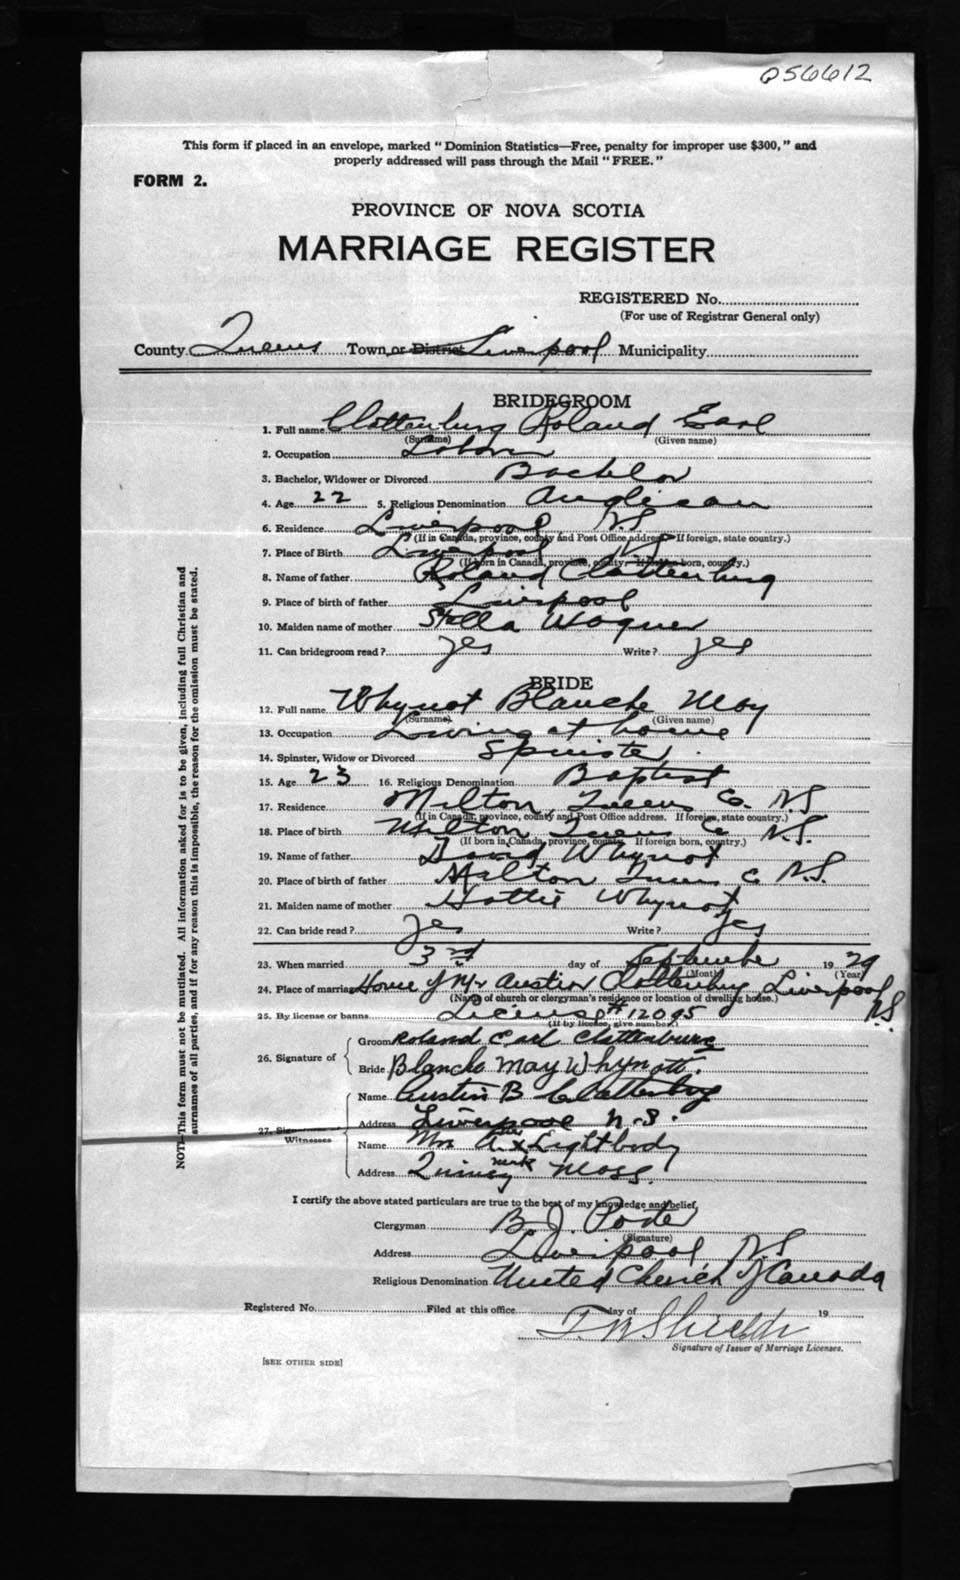 056612
This form if placed in an envelope, marked "Dominion Statistics—Free, penalty for improper use $300," and
properly addressed will pass through the Mail "FREE."
FORM 2.
PROVINCE OF NOVA SCOTIA
MARRIAGE REGISTER
REGISTERED No.
(For use of Registrar General only)
County Queens Town or District Liverpool Municipality
BRIDEGROOM
1. Full name Clattenburg Roland Earl
(Surname) (Given name)
2. Occupation Labor
3. Bachelor, Widower or Divorced Bachelor
4. Age 22 5. Religious Denomination Anglican
6. Residence Liverpool N.S
(If in Canada, province, county and Post Office address. If foreign, state country.)
7. Place of Birth Liverpool N.S
(If born in Canada, province, county. If foreign born, country.)
8. Name of father Roland Clattenburg
9. Place of birth of father Liverpool
10. Maiden name of mother Stella Wagner
11. Can bridegroom read? yes Write? yes
BRIDE
12. Full name Whynot Blanche May
(Surname) (Given name)
13. Occupation Living at home
14. Spinster, Widow or Divorced Spinster
15. Age 23 16. Religious Denomination Baptist
17. Residence Milton, Queens Co. N.S
(If in Canada, province, county and Post Office address. If foreign, state country.)
18. Place of birth Milton Queens Co N.S.
(If born in Canada, province, county. If foreign born, country.)
19. Name of father David Whynot
20. Place of birth of father Milton Queens C N.S.
21. Maiden name of mother Hattie Whynot
22. Can bride read? yes Write? yes
23. When married 3rd day of September 1929
(Month) (Year)
24. Place of marriage Home of Mr Austin Clattenburg Liverpool N.S.
(Name of church or clergyman's residence or location of dwelling house.)
25. By license or banns License #12095
(If by license, give number.)
26. Signature of Groom Roland Earl Clattenburg
Bride Blanche May Whynott.
Name Austin B Clattenburg
Address Liverpool N.S.
27. Witnesses
Name Mrs A. x Lightbody
mark
Address Quincy Mass.
I certify the above stated particulars are true to the best of my knowledge and belief.
Clergyman B J Porter
(Signature)
Address Liverpool N.S
Religious Denomination United Church of Canada
Registered No. Filed at this office day of 19
Shields
Signature of Issuer of Marriage Licenses.
[SEE OTHER SIDE]
NOTE—This form must not be mutilated. All information asked for is to be given, including full Christian and
surnames of all parties, and if for any reason this is impossible, the reason for the omission must be stated.